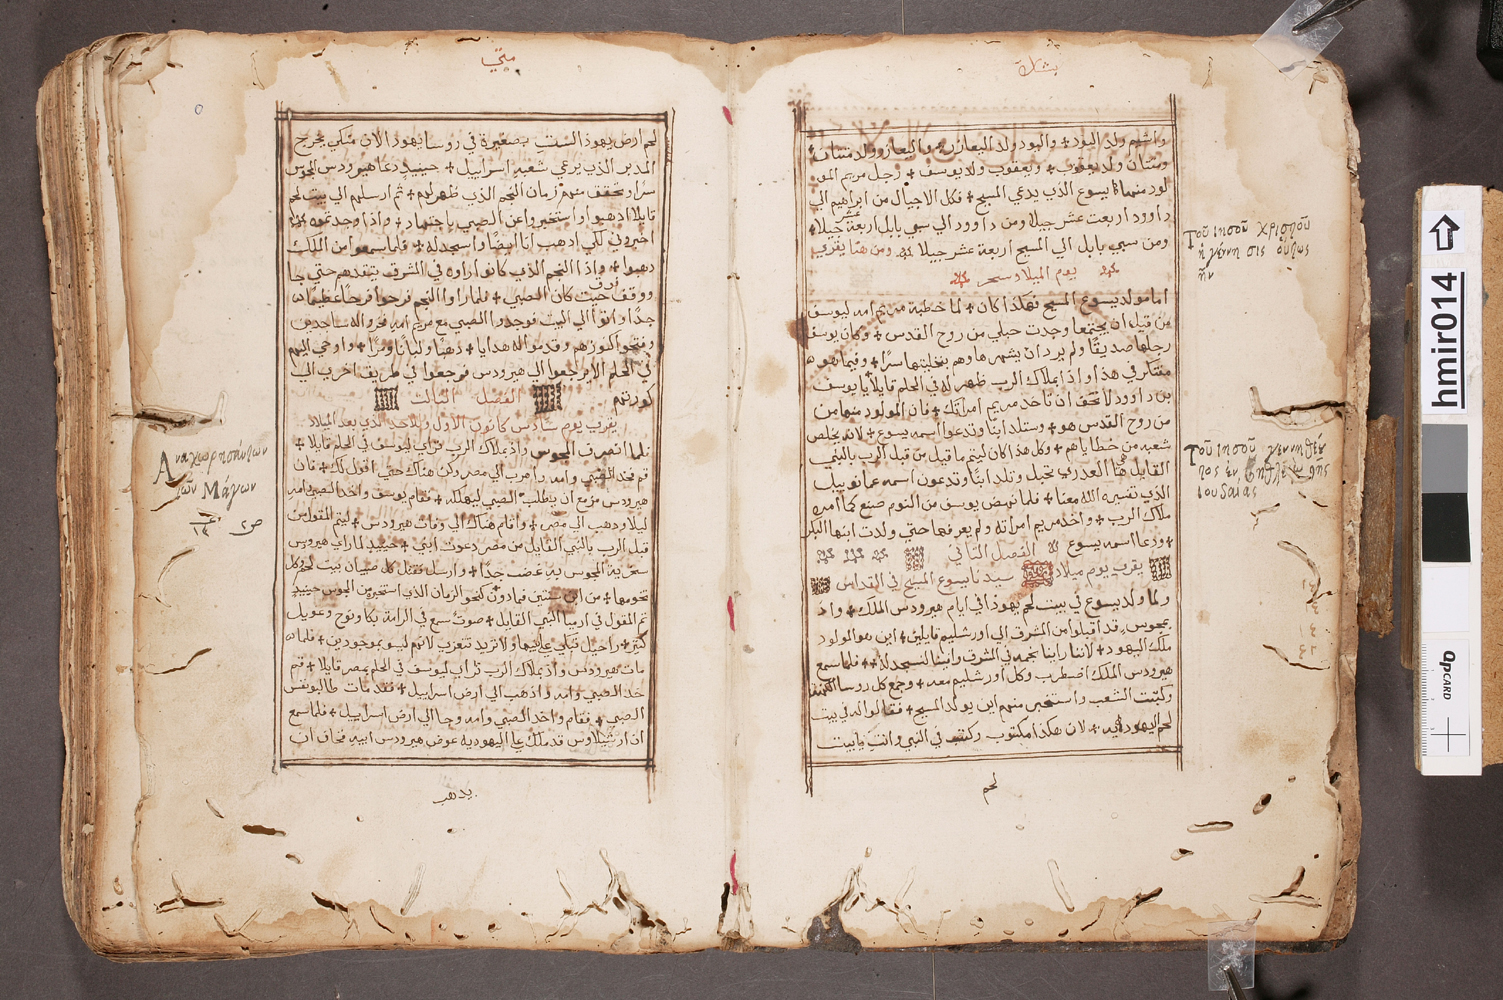 بشارة
واشيم ولد اليود + واليود ولد اليعازر + واليعازر ولد متتان +
ومتتان ولد يعقوب + ويعقوب ولد يوسف + رجل مريم المو
لود منها يسوع الذي يدعي المسيح + فكل الاجيال من ابراهيم الي
داوود اربعت عشر جيلا ومن داوود الي سبي بابل اربعة عشر جيلا
ومن سبي بابل الي المسيح اربعة عشر جيلا ومن هنا يقري
يوم الميلاد سحر
اما مولد يسوع المسيح فهكذا كان + لما خطبة مريم امه ليوسف
من قبل ان يجتمعا وجدت حبلي من روح القدس + وكان يوسف
رجلها صديقا ولم يرد ان يشهرها وهم بتخليتها سرا + وفيما هو
متفكر في هذا واذا بملاك الرب ظهر له في الحلم قايلا يا يوسف
بن داوود لا تخف ان تاخد مريم امراتك + فان المولود منها من
من روح القدس هو + وستلد ابنا وتدعوا اسمه يسوع + لانه يخلص
شعبه من خطاياهم + وكل هذا كان ليتم ما قيل من قبل الرب بالنبي
القايل هذا العدري تحبل وتلد ابنا وتدعون اسمه عمانوييل
الذي تفسيره الله معنا + فلما نهض يوسف من النوم صنع كما امره
ملاك الرب + واخد مريم امراته ولم يعرفها حتي ولدت ابنها البكر
+ ودعا اسمه يسوع الفصل التاني
يقري يوم ميلاد سيدنا يسوع المسيح في القداس
ولما ولد يسوع في بيت لحم يهودا في ايام هيرودس الملك + واذ
بمجوس قد اقبلوا من المشرق الي اورشليم قايلين + اين هو المولود
ملك اليهود + لاننا راينا نجمه في الشرق واتينا لنسجد له + فلما سمع
هيرودس الملك اضطرب وكل اورشليم معه + وجمع كل روسا الكهنة
وكتبت الشعب واستخبر منهم اين يولد المسيح + فقالوا له في بيت
لحم اليهودية + لان هكذا مكتوب في النبي وانت يا بيت
لحم
Τοῦ Ιησοῦ Χριστοῦ
ἡ γέννησις οὕτως
ἦν
Τοῦ Ιησοῦ γεννηθέν
τος ἐν Βηθλεὲμ τῆς
Ιουδαίας
متي
لحم ارض يهوذا لست بصغيرة في روسا يهودا لان منكي يخرج
المدبر الذي يرعي شعبه اسراييل + حينيد دعا هيرودس المجوس
سرا وتحقق منهم زمان النجم الذي ظهر لهم + تم ارسلهم الي بيت لحم
قايلا ادهبوا واستخبروا عن الصبي باجتهاد + واذا وجدتموه
اخبروني لكي ادهب انا ايضا واسجد له + فلما سمعوا من الملك
دهبوا + واذا النجم الذي كانوا راوه في الشرق يتقدمهم حتي جا
ووقف حيت كان الصبي + فلما راوا النجم فرحوا فرحا عظيما
جدا واتوا الي البيت فوجدوا الصبي مع مريم امه فخروا له ساجدين
وفتحوا كنوزهم وقدموا له هدايا + دهبا ولبانا ومرا + واوحي اليهم
في الحلم الا يرجعوا الي هيرودس فرجعوا في طريق اخري الي
كورتهم الفصل التالت
يقري يوم سادس كانون الاول وللاحد الدي بعد الميلاد
فلما انصرف المجوس واذ بملاك الرب تراي ليوسف في الحلم قايلا +
قم فخد الصبي وامه واهرب الي مصر وكن هناك حتي اقول لك + فان
هيرودس مزمع ان يطلب الصبي ليهلكه + فقام يوسف واخد الصبي وامه
ليلا ودهب الي مصر + واقام هناك الي وفات هيرودس + ليتم المقول من
قبل الرب بالنبي القايل من مصر دعوت ابني + حينيد لما راي هيرودس
سخرية المجوس به غضب جدا + وارسل فقتل كل صبيان بيت لحم وكل
تخومها + من ابن سنتين فما دون كنحو الزمان الذي استخبره من المجوس حينيد
تم المقول في ارميا النبي القايل + صوت سمع في الرامة بكا ونوح وعويل
كتير + راحيل تبكي علي بنيها ولا تريد تتعزي لانهم ليسو بموجودين + فلما
مات هيرودس واذ بملاك الرب تراي ليوسف في الحلم بمصر قايلا + قم
خد الصبي وامه واذهب الي ارض اسراييل + فقد مات طالبو نفس
الصبي + فقام واخد الصبي وامه وجا الي ارض اسراييل + فلما سمع
ان ارشيلاوس قد ملك علي اليهودية عوض هيرودس ابيه فخاف ان
يدهب
Αναχωρησάντων
τῶν Μάγων
hmir014
QPCARD